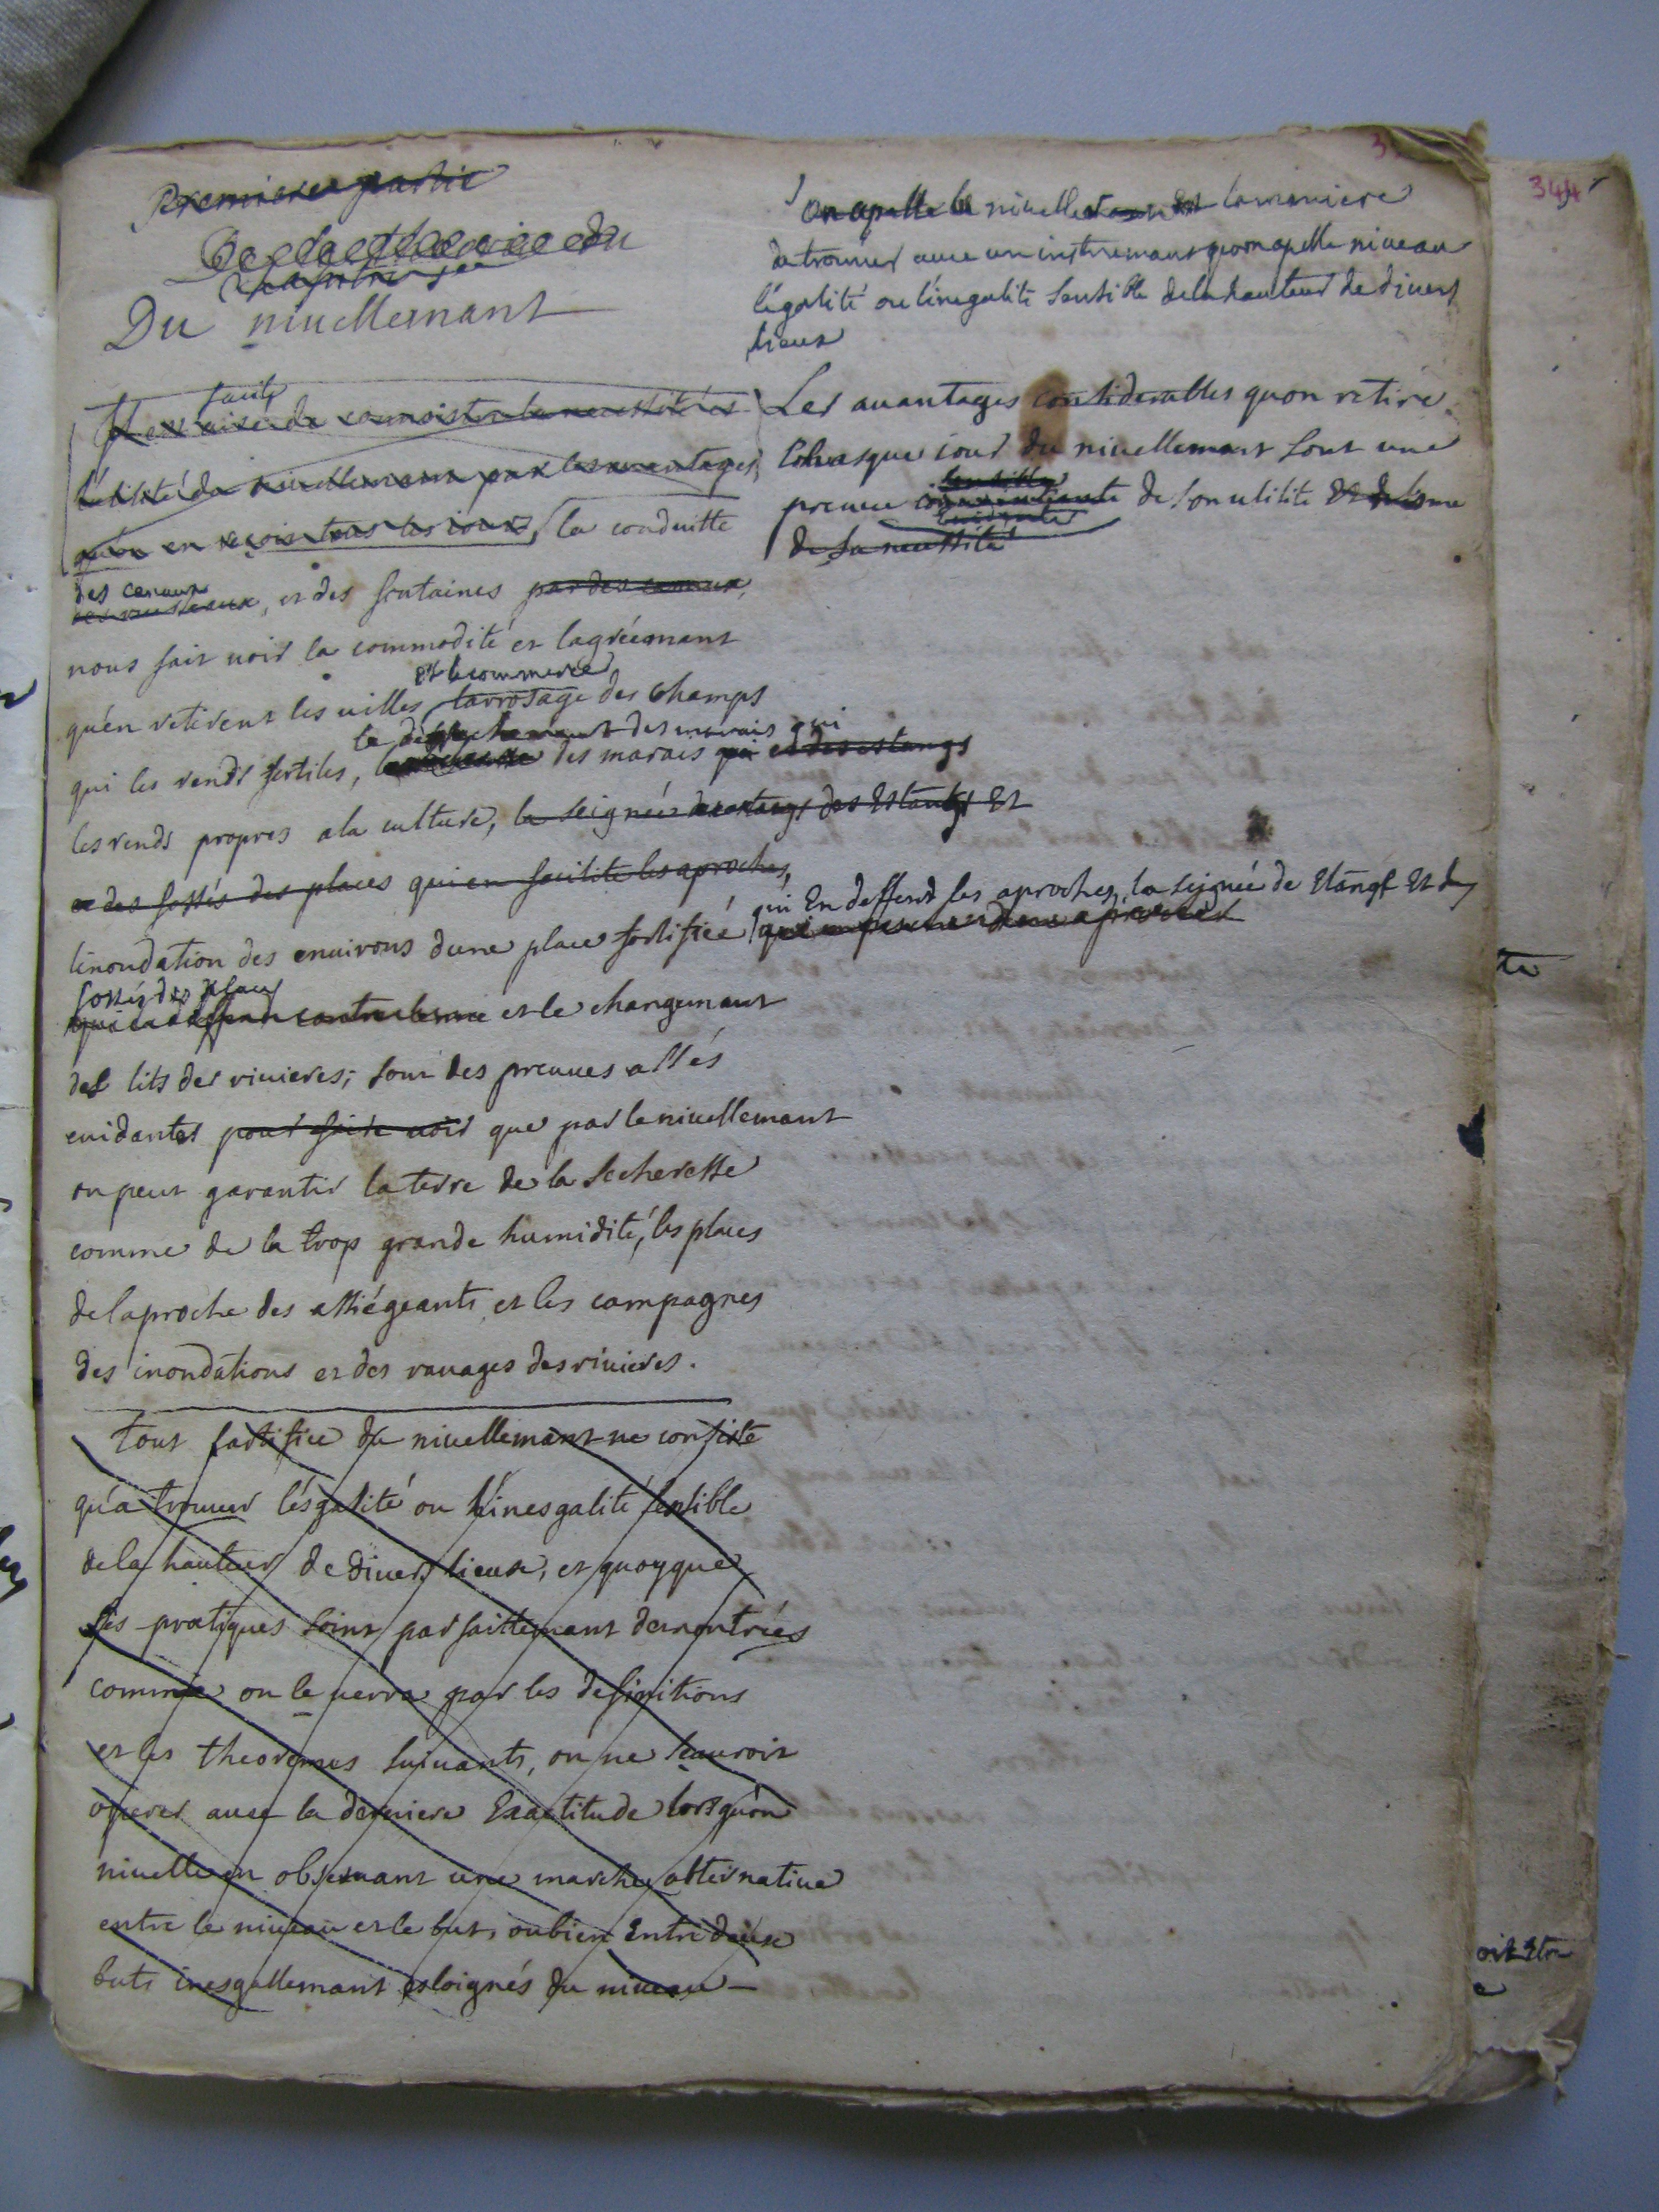 Premiere partie
De la theorie du
Chapitre 1er
Du niuellemant
Il est aisé de connoistre la necessité et
l'utilité du niuellemant par les auantages
qu'on en reçoit tous les iours, la conduitte
des canaux
des ruisseaux, et des fontaines par des canaux,
nous fait uoir la commodité et lagréemant
et le commerce
qu'en retirent les uilles, larrosage des champs
le desséchemant des marais qui
qui les rends fertiles, des marais qui et des estangs
les rends propres ala culture, la seignée des estangs des Estangs Et
et des fossés des places qui en facilite les aproches,
qui En deffend les aproches, la seignée de Etangs Et des
linondation des enuirons dune place fortifiée
fossés des places
et le changemant
des lits des riuieres; sont des preuues assés
euidantes pour faire uoir que par le niuellemant
on peut garantir la terre de la secheresse
comme de la trop grande humidité, les places
de laproche des assiégeants et les campagnes
des inondations et des rauages des riuieres.
tout lartifice du niuellemant ne consiste
qu'a trouuer lésgalité ou linesgalité sensible
de la hauteur de diuers lieux, et quoyque
ses pratiques soint parfaittemant demontrées
comme on le uerra par les definitions
et les theoremes suiuants, on ne scauroit
operer auec la derniere Exactitude lorsqu'on
niuelle en obseruant une marche alternatiue
entre le niueau et le but, oubien Entre deux
buts inesgallemant esloignés du niueau
On apelle le niuellemant Est la maniere
de trouuer auec un instrumant quon apelle niueau
légalité ou linegalité sensible de la hauteur de diuers
lieux
Les auantages considerables quon retire
chasque iour du niuellemant sont une
sensible
preuue conuaincante de son utilité Et de
euidente
de sa necessité
344
te
oit Etre
e